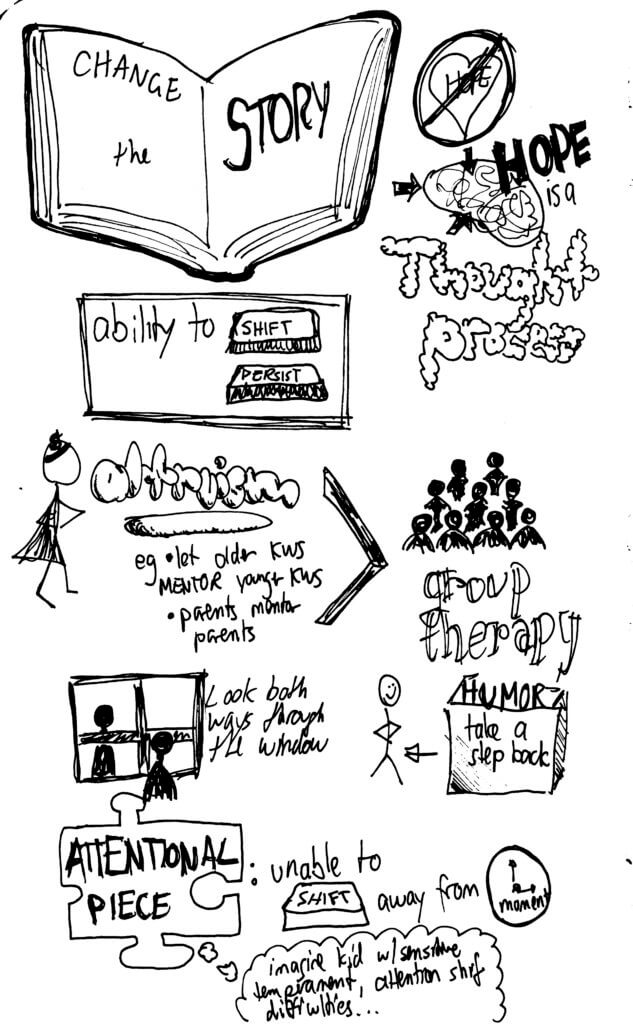 CHANGE
the
STORY
HOPE
HOPE
is a
Thought
process
ability to SHIFT
PERSIST
altruism
eg • let older KWS
MENTOR younger KWS
• parents mentor
parents
group
therapy
Look both
ways through
the window
HUMOR
take a
step back
ATTENTIONAL
PIECE
: unable to
SHIFT away from moment
imagine kid w/sensitive
temperament, attention shif
difficulties...